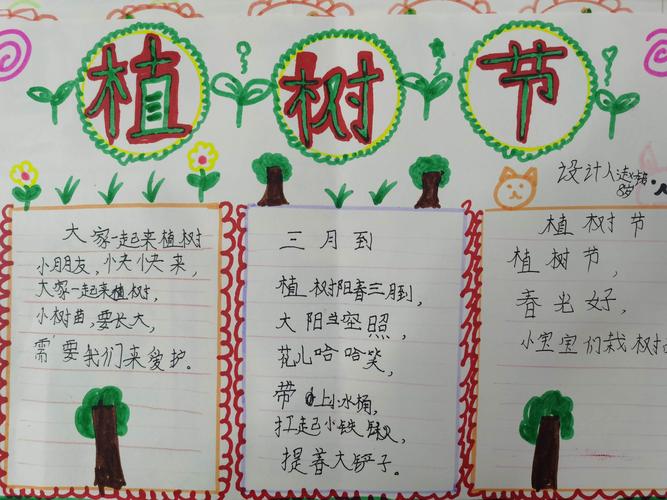 植树节
设计人
8岁
大家一起来植树
小朋友，快快来，
大家一起来植树，
小树苗，要长大，
需要我们来爱护。
三月到
植树阳春三月到，
大阳当空照，
花儿哈哈笑，
带上小水桶，
扛起小铁锹，
提着大铲子。
植树节
植树节，
春光好，
小宝宝们栽树